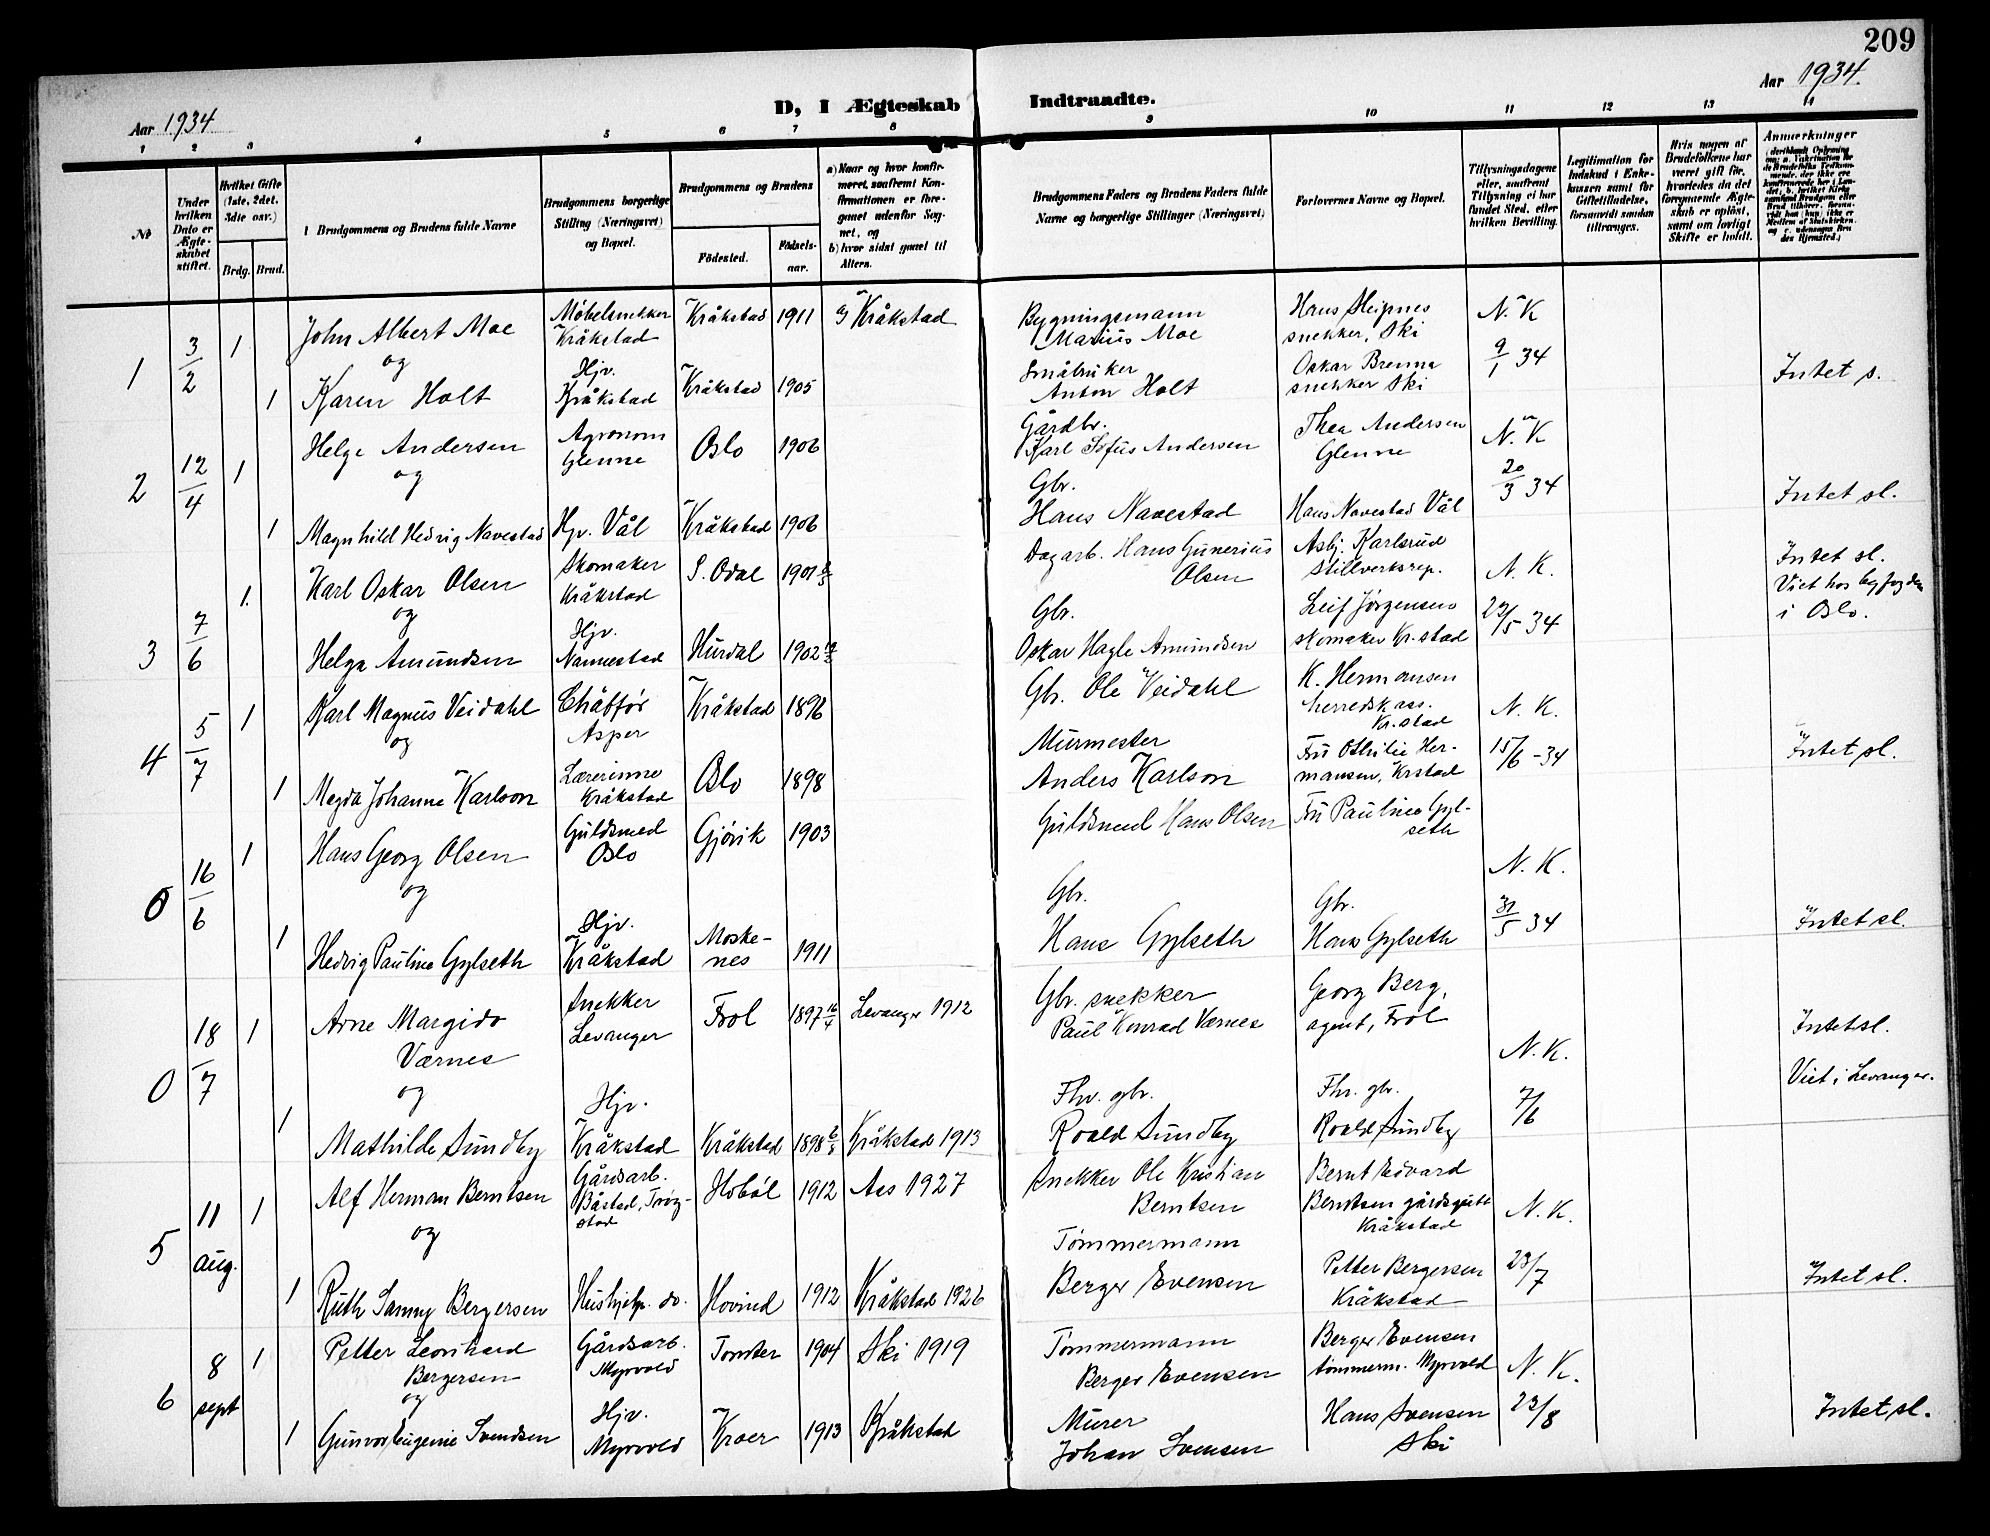 209
Aar 1934
D, I Ægteskab Indtraadte.
Aar 1934.
1 2 3 4 5 6 7 8 9 10 11 12 13 14
№
Under hvilken Dato er Ægteskabet stiftet.
Hvilket Gifte (1ste, 2det, 3die osv.)
Brdg. Brud.
Brudgommens og Brudens fulde Navne
Brudgommens borgerlige Stilling (Næringsvei) og Bopæl.
Brudgommens og Brudens
Födested.
Födsels-aar.
a) Naar og hvor konfirmeret, saafremt Konfirmationen er foregaaet udenfor Sognet, og
b) hvor sidst gaaet til Alters.
Brudgommens Faders og Brudens Faders fulde Navne og borgerlige Stillinger (Næringsvei)
Forlovernes Navne og Bopæl.
Tillysningsdagene eller, saafremt Tillysning ei har fundet Sted, efter hvilken Bevilling.
Legitimation for Indskud i Enkekassen samt for Giftetilladelse, forsaavidt saadan tiltrænges.
Hvis nogen af Brudefolkene har været gift før, hvorledes da det foregaaende Ægteskab er opløst, samt om lovligt Skifte er holdt.
Anmerkninger
1 3/2 1 John Albert Moe Møbelsnekker Kråkstad Kråkstad 1911 Kråkstad Bygningsmann Marius Moe Hans Sleipnes snekker, Ski N. K
og
1 Karen Holt Hjv. Kråkstad Kråkstad 1905 Småbruker Anton Holt Oskar Brenna snekker Ski 9/1 34 Intet s.
2 12/4 1 Helge Andersen Agronom Glenne Oslo 1906 Gårdbr. Karl Sofus Andersen Thea Andersen Glenne N. K
og
1 Magnhild Hedvig Navestad Hjv. Vål Kråkstad 1906 Gbr. Hans Navestad Hans Navestad Vål 20/3 34 Intet sl.
3 7/6 1. Karl Oskar Olsen Skomaker Kråkstad S. Odal 1901 Dagarb. Hans Gunerius Olsen Asbj. Karlsrud stillverksrep. N. K. Intet sl. Viet hos byfogden i Oslo.
og
Helga Amundsen Hjv. Nannestad Hurdal 1902 Gbr. Oskar Hagle Amundsen Leif Jørgensen skomaker Kr.stad 22/5 34
4 5/7 1 Karl Magnus Veidahl Chåffør Asper Kråkstad 1896 Gbr. Ole Veidahl K. Hermansen herredskass. Kr.stad N. K.
og
1 Magda Johanne Karlson Lærerinne Kråkstad Oslo 1898 Murmester Anders Karlson Fru Othilie Hermansen, Krstad 15/6 -34 Intet sl.
0 16/6 1 Hans Georg Olsen Guldsmed Oslo Gjøvik 1903 Guldsmed Hans Olsen Fru Pauline Gylseth N. K.
og
1 Hedvig Pauline Gylseth Hjv. Kråkstad Moskenes 1911 Gbr. Hans Gylseth Gbr. Hans Gylseth 31/5 34 Intet sl.
0 18/7 1 Arne Margido Værnes Snekker Levanger Frol 1897 16/4 Levanger 1912 Gbr. snekker Paul Konrad Værnes Georg Berg, agent, Frol N. K. Intet sl.
og
1 Mathilde Sundby Hjv. Kråkstad Kråkstad 1898 Kråkstad 1913 Fhv. gbr. Roald Sundby Fhv. gbr. Roald Sundby 7/6 Viet i Levanger.
5 11 aug. 1 Alf Herman Berntsen Gårdsarb. Båstad, Trøgstad Hobøl 1912 Aas 1927 Snekker Ole Kristian Berntsen Bernt Edvard Berntsen gårdsgutt Kråkstad N. K.
og
1 Ruth Samny Bergersen Hushjelp. do. Hovind 1912 Kråkstad 1926 Tømmermann Berger Evensen Petter Bergersen Kråkstad 23/7 Intet sl.
6 8 sept 1 Petter Leonhard Bergersen Gårdsarb. Myrvold Tomter 1904 Ski 1919 Tømmermann Berger Evensen Berger Evensen tømmerm. Myrvold N. K.
og
1 Gunvor Eugenie Svendsen Hjv. Myrvold Kroer 1913 Kråkstad Murer Johan Svensen Hans Svensen Ski 23/8 Intet sl.